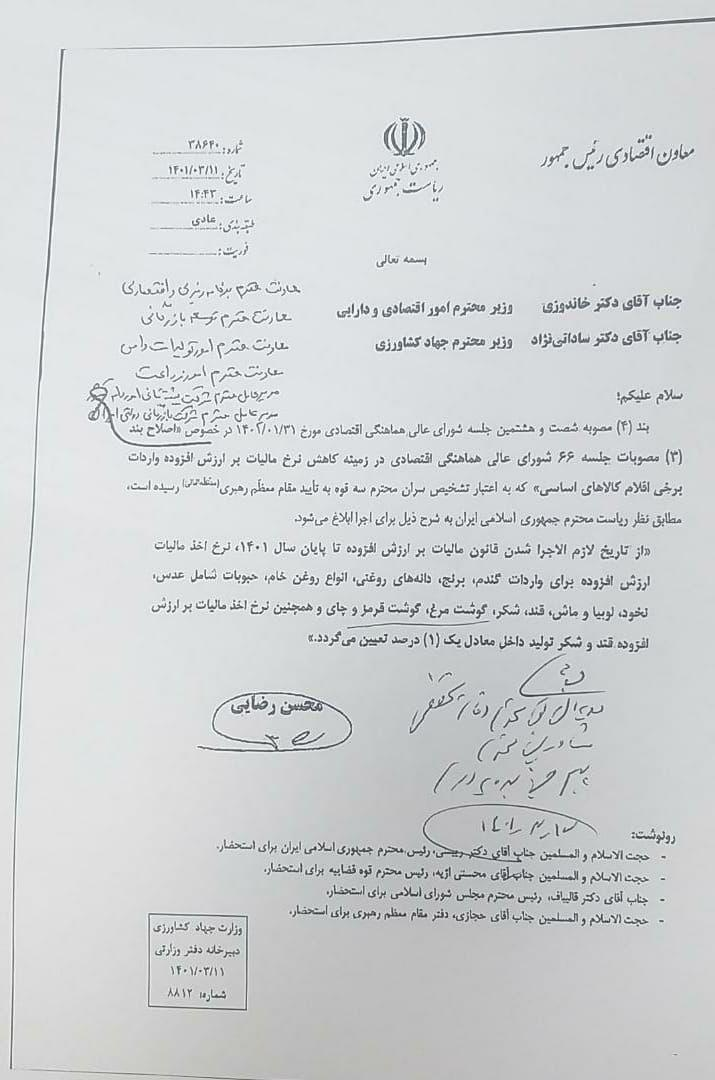 معاون اقتصادی رئیس جمهور
جمهوری اسلامی ایران
ریاست جمهوری
شماره: ۳۸۶۴۰
تاریخ: ۱۴۰۱/۰۳/۱۱
ساعت: ۱۴:۴۳
طبقه‌بندی: عادی
فوریت:
بسمه تعالی
جناب آقای دکتر خاندوزی وزیر محترم امور اقتصادی و دارایی
جناب آقای دکتر ساداتی‌نژاد وزیر محترم جهاد کشاورزی
معاونت محترم برنامه ریزی و اقتصادی
معاونت محترم توسعه بازرگانی
معاونت محترم امور تولیدات دامی
معاونت محترم امور زراعت
مدیرعامل محترم شرکت پشتیبانی امور دام کشور
مدیرعامل محترم شرکت بازرگانی دولتی ایران
سلام علیکم؛
بند (۴) مصوبه شصت و هشتمین جلسه شورای عالی هماهنگی اقتصادی مورخ ۱۴۰۲/۰۱/۳۱ در خصوص «اصلاح بند
(۳) مصوبات جلسه ۶۶ شورای عالی هماهنگی اقتصادی در زمینه کاهش نرخ مالیات بر ارزش افزوده واردات
برخی اقلام کالاهای اساسی» که به اعتبار تشخیص سران محترم سه قوه به تأیید مقام معظم رهبری(مدظله‌العالی) رسیده است،
مطابق نظر ریاست محترم جمهوری اسلامی ایران به شرح ذیل برای اجرا ابلاغ می‌شود.
«از تاریخ لازم الاجرا شدن قانون مالیات بر ارزش افزوده تا پایان سال ۱۴۰۱، نرخ اخذ مالیات
ارزش افزوده برای واردات گندم، برنج، دانه‌های روغنی، انواع روغن خام، حبوبات شامل عدس،
نخود، لوبیا و ماش، قند، شکر، گوشت مرغ، گوشت قرمز و چای و همچنین نرخ اخذ مالیات بر ارزش
افزوده قند و شکر تولید داخل معادل یک (۱) درصد تعیین می‌گردد.»
محسن رضایی
رونوشت:
- حجت الاسلام و المسلمین جناب آقای دکتر رییسی، رئیس محترم جمهوری اسلامی ایران برای استحضار.
- حجت الاسلام و المسلمین جناب آقای محسنی اژیه، رئیس محترم قوه قضاییه برای استحضار.
- جناب آقای دکتر قالیباف، رئیس محترم مجلس شورای اسلامی برای استحضار.
- حجت الاسلام و المسلمین جناب آقای حجازی، دفتر مقام معظم رهبری برای استحضار.
وزارت جهاد کشاورزی
دبیرخانه دفتر وزارتی
۱۴۰۱/۰۳/۱۱
شماره: ۸۸۱۲